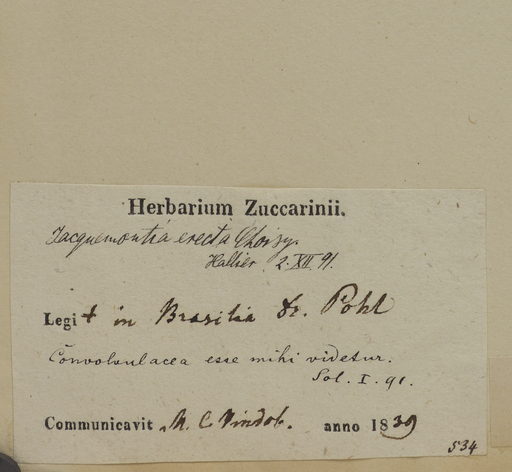 Herbarium Zuccarinii.
Jacquemontia erecta Choisy.
Hallier. 2. XII 91.
Legit in Brasilia Dr. Pohl
Convolvulacea esse mihi videtur.
Sol. I. 91.
Communicavit M. C. Vindob. anno 1839
534